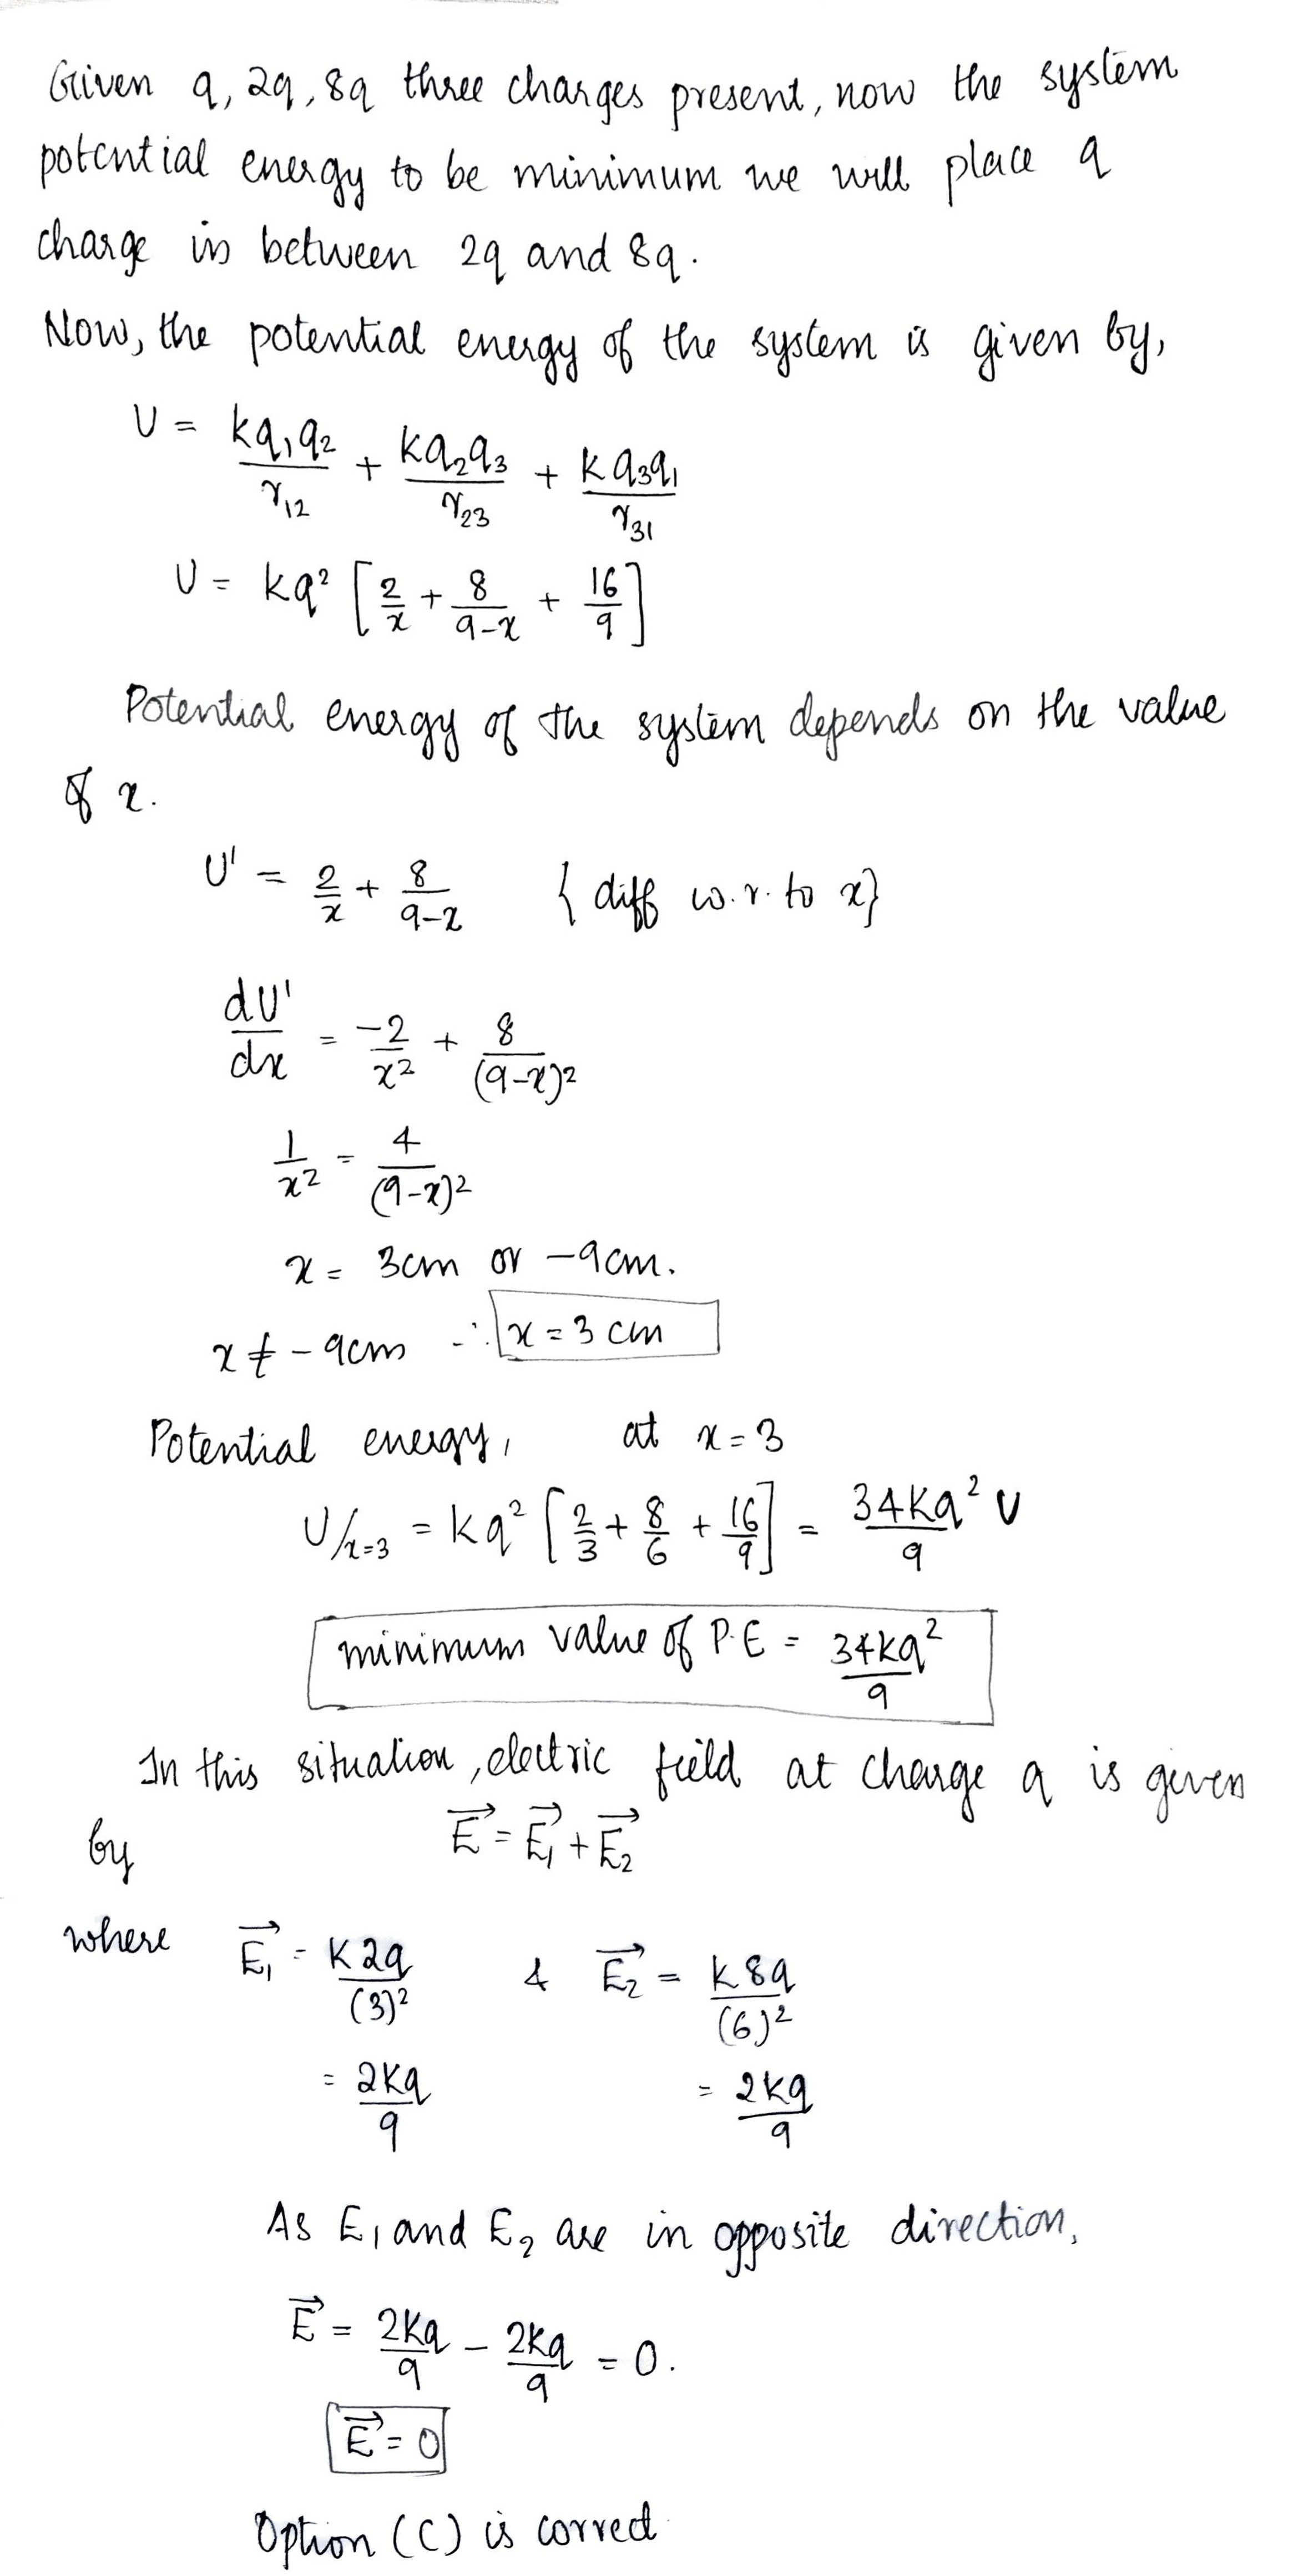 Given q, 2q, 8q three charges present, now the system
potential energy to be minimum we will place q
charge in between 2q and 8q.
Now, the potential energy of the system is given by,
U = kq₁q₂/r₁₂ + kq₂q₃/r₂₃ + kq₃q₁/r₃₁
U = kq² [2/x + 8/9-x + 16/9]
Potential energy of the system depends on the value
of x.
U' = 2/x + 8/9-x {diff w.r.to x}
dU'/dx = -2/x² + 8/(9-x)²
1/x² = 4/(9-x)²
x = 3cm or -9cm.
x ≠ -9cm ∴ x = 3 cm
Potential energy, at x = 3
U/x=3 = kq² [2/3 + 8/6 + 16/9] = 34kq²/9 U
minimum value of P.E = 34kq²/9
In this situation, electric field at charge q is given
by E⃗ = E⃗₁ + E⃗₂
where E⃗₁ = K2q/(3)² & E⃗₂ = K8q/(6)²
= 2Kq/9 = 2Kq/9
As E₁ and E₂ are in opposite direction,
E⃗ = 2Kq/9 - 2Kq/9 = 0.
E⃗ = 0
Option (C) is correct